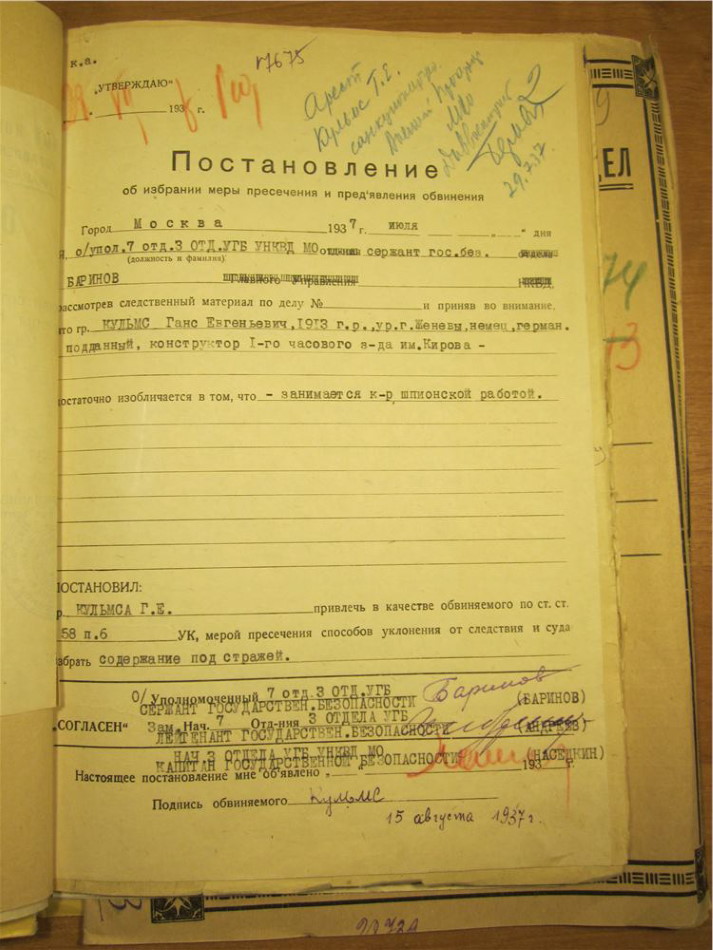 к.а.
17675
„УТВЕРЖДАЮ“
193 г.
Арест
Кульмс Г.Е.
санкционирую.
Военный Прокурор
МВО
29.7.37
Постановление
об избрании меры пресечения и пред'явления обвинения
Город Москва 1937 г. июля „ „ дня
о/упол.7 отд.3 ОТД.УГБ УНКВД МО отделения сержант гос.без. отдела
(должность и фамилия)
БАРИНОВ Главного Управления НКВД,
рассмотрев следственный материал по делу № и приняв во внимание,
что гр. КУЛЬМС Ганс Евгеньевич,1913 г.р.,ур.г.Женевы,немец,герман.
подданный, конструктор I-го часового з-да им.Кирова –
достаточно изобличается в том, что – занимается к-р шпионской работой.
ПОСТАНОВИЛ:
гр. КУЛЬМСА Г.Е. привлечь в качестве обвиняемого по ст. ст.
58 п.6 УК, мерой пресечения способов уклонения от следствия и суда
избрать содержание под стражей.
О/Уполномоченный 7 отд.3 ОТД.УГБ Баринов
СЕРЖАНТ ГОСУДАРСТВЕН.БЕЗОПАСНОСТИ (БАРИНОВ)
„СОГЛАСЕН“ Зам.Нач. 7 Отд-ния 3 ОТДЕЛА УГБ
ЛЕЙТЕНАНТ ГОСУДАРСТВЕН.БЕЗОПАСНОСТИ (АНДРЕЕВ)
НАЧ.3 ОТДЕЛА УГБ УНКВД МО
КАПИТАН ГОСУДАРСТВЕННОЙ БЕЗОПАСНОСТИ (НАСЕДКИН)
Настоящее постановление мне об'явлено „ 193 г.
Подпись обвиняемого Кульмс
15 августа 1937г.
ДЕЛ
74
13